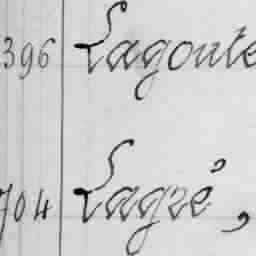 396 Lagoute
704 Lagré,